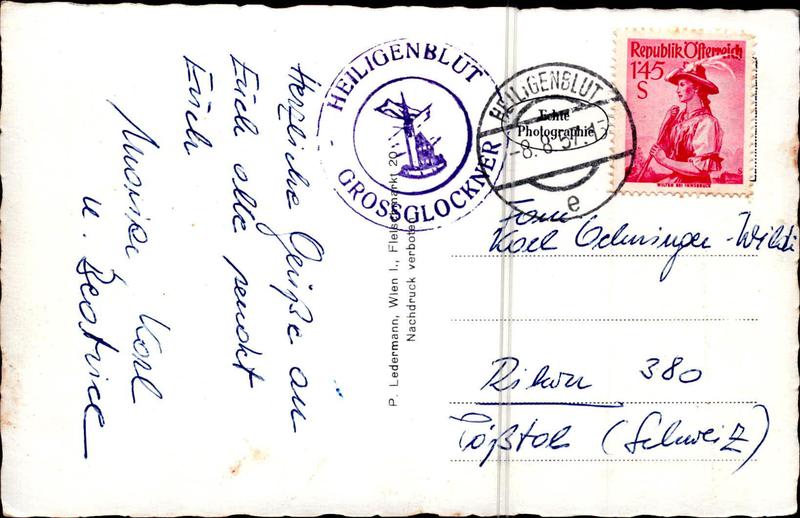 Herzliche Grüße an
Euch alle sendet
Euch
Karl
u. Beatrice
HEILIGENBLUT
GROSSGLOCKNER
P. Ledermann, Wien I., Fleischmarkt 20
Nachdruck verboten
HEILIGENBLUT
Echte
Photographie
-8.8.57.-13
e
Republik Österreich
145
S
WILTEN BEI INNSBRUCK
Fam.
Karl
Rikon 380
Tößtal (Schweiz)